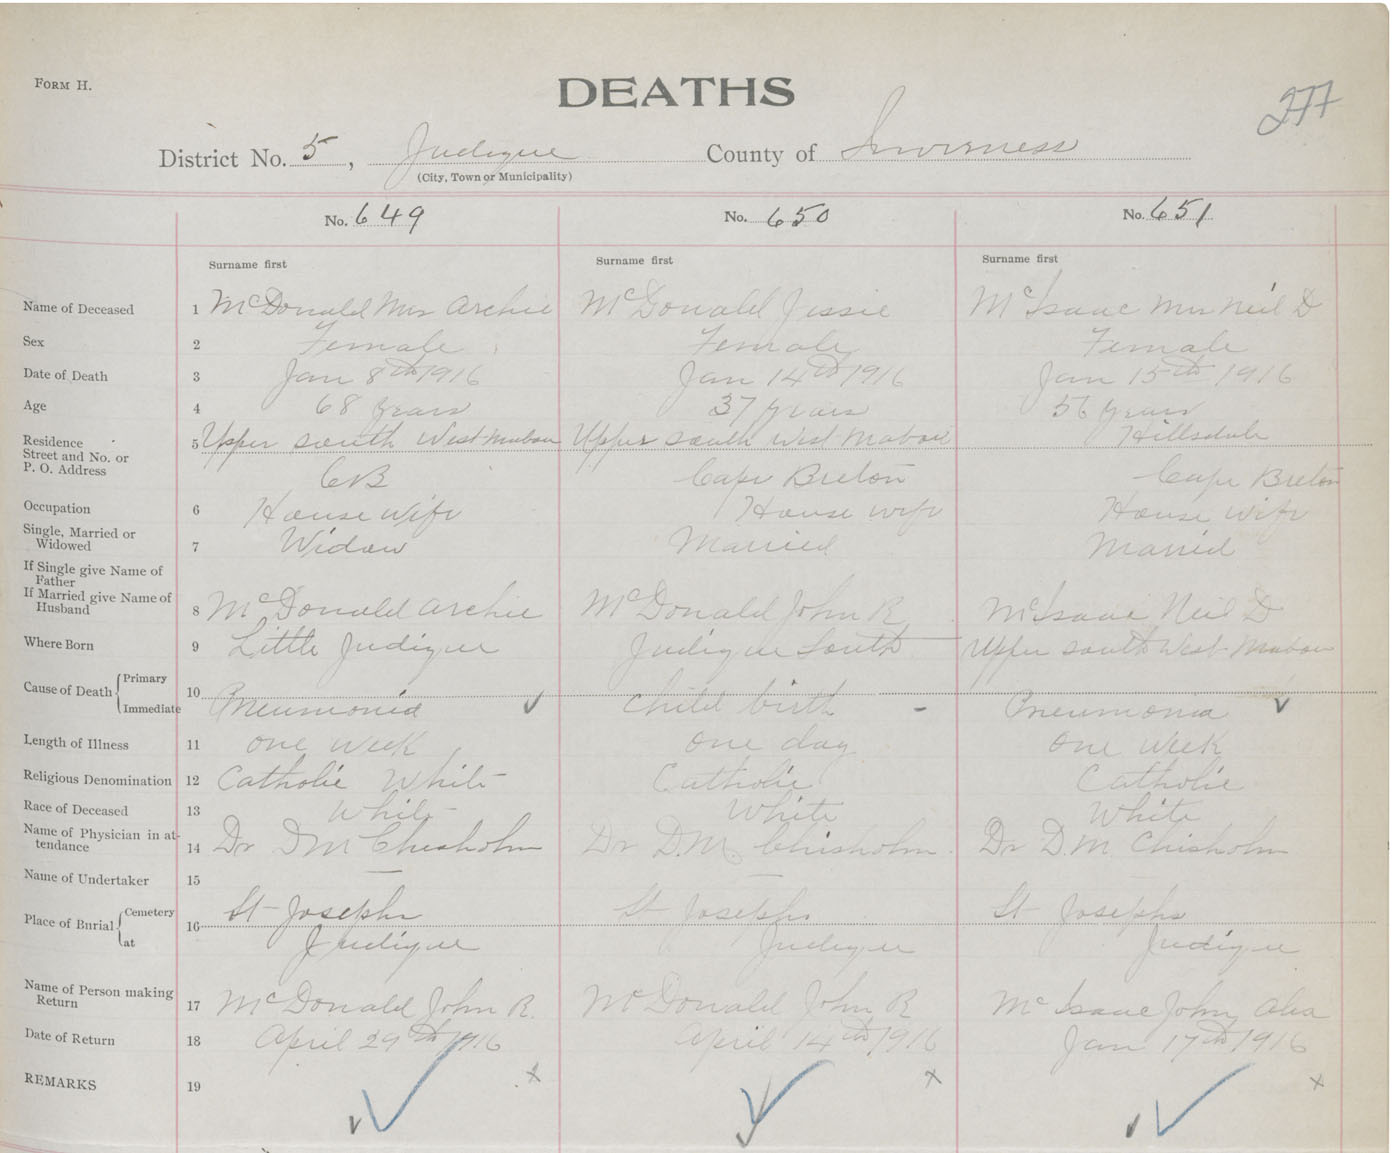 FORM H.
DEATHS
277
District No. 5, Judique County of Inverness
(City, Town or Municipality)
No. 649 No. 650 No. 651
Surname first Surname first Surname first
Name of Deceased 1 McDonald Mrs Archie McDonald Jessie McIsaac Mrs Neil D
Sex 2 Female Female Female
Date of Death 3 Jan 8th 1916 Jan 14th 1916 Jan 15th 1916
Age 4 68 years 37 years 56 years
Residence Street and No. or P. O. Address 5 Upper south West Mabou Upper south West Mabou Hillsdale
CB Cape Breton Cape Breton
Occupation 6 House wife House wife House wife
Single, Married or Widowed 7 Widow Married Married
If Single give Name of Father
If Married give Name of Husband 8 McDonald Archie McDonald John R McIsaac Neil D
Where Born 9 Little Judique Judique South Upper south West Mabou
Cause of Death { Primary 10
Immediate Pneumonia child birth - Pneumonia
Length of Illness 11 one week one day one week
Religious Denomination 12 Catholic White Catholic Catholic
Race of Deceased 13 White White White
Name of Physician in attendance 14 Dr D M Chisholm Dr D.M. Chisholm Dr D.M. Chisholm
Name of Undertaker 15 — —
Place of Burial { Cemetery 16 St Josephs St Josephs St Josephs
at Judique Judique Judique
Name of Person making Return 17 McDonald John R. McDonald John R McIsaac John
Date of Return 18 April 29th 1916 April 14th 1916 Jan 17th 1916
REMARKS 19 x x x